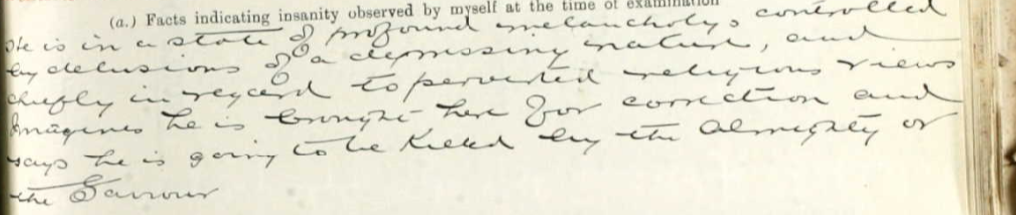 (a.) Facts indicating insanity observed by myself at the time of examination
He is in a state of profound melancholy, controlled
by delusions of a depressing nature, and
chiefly in regard to perverted religious views
Imagines he is brought here for correction and
says he is going to be killed by the Almighty or
the Saviour